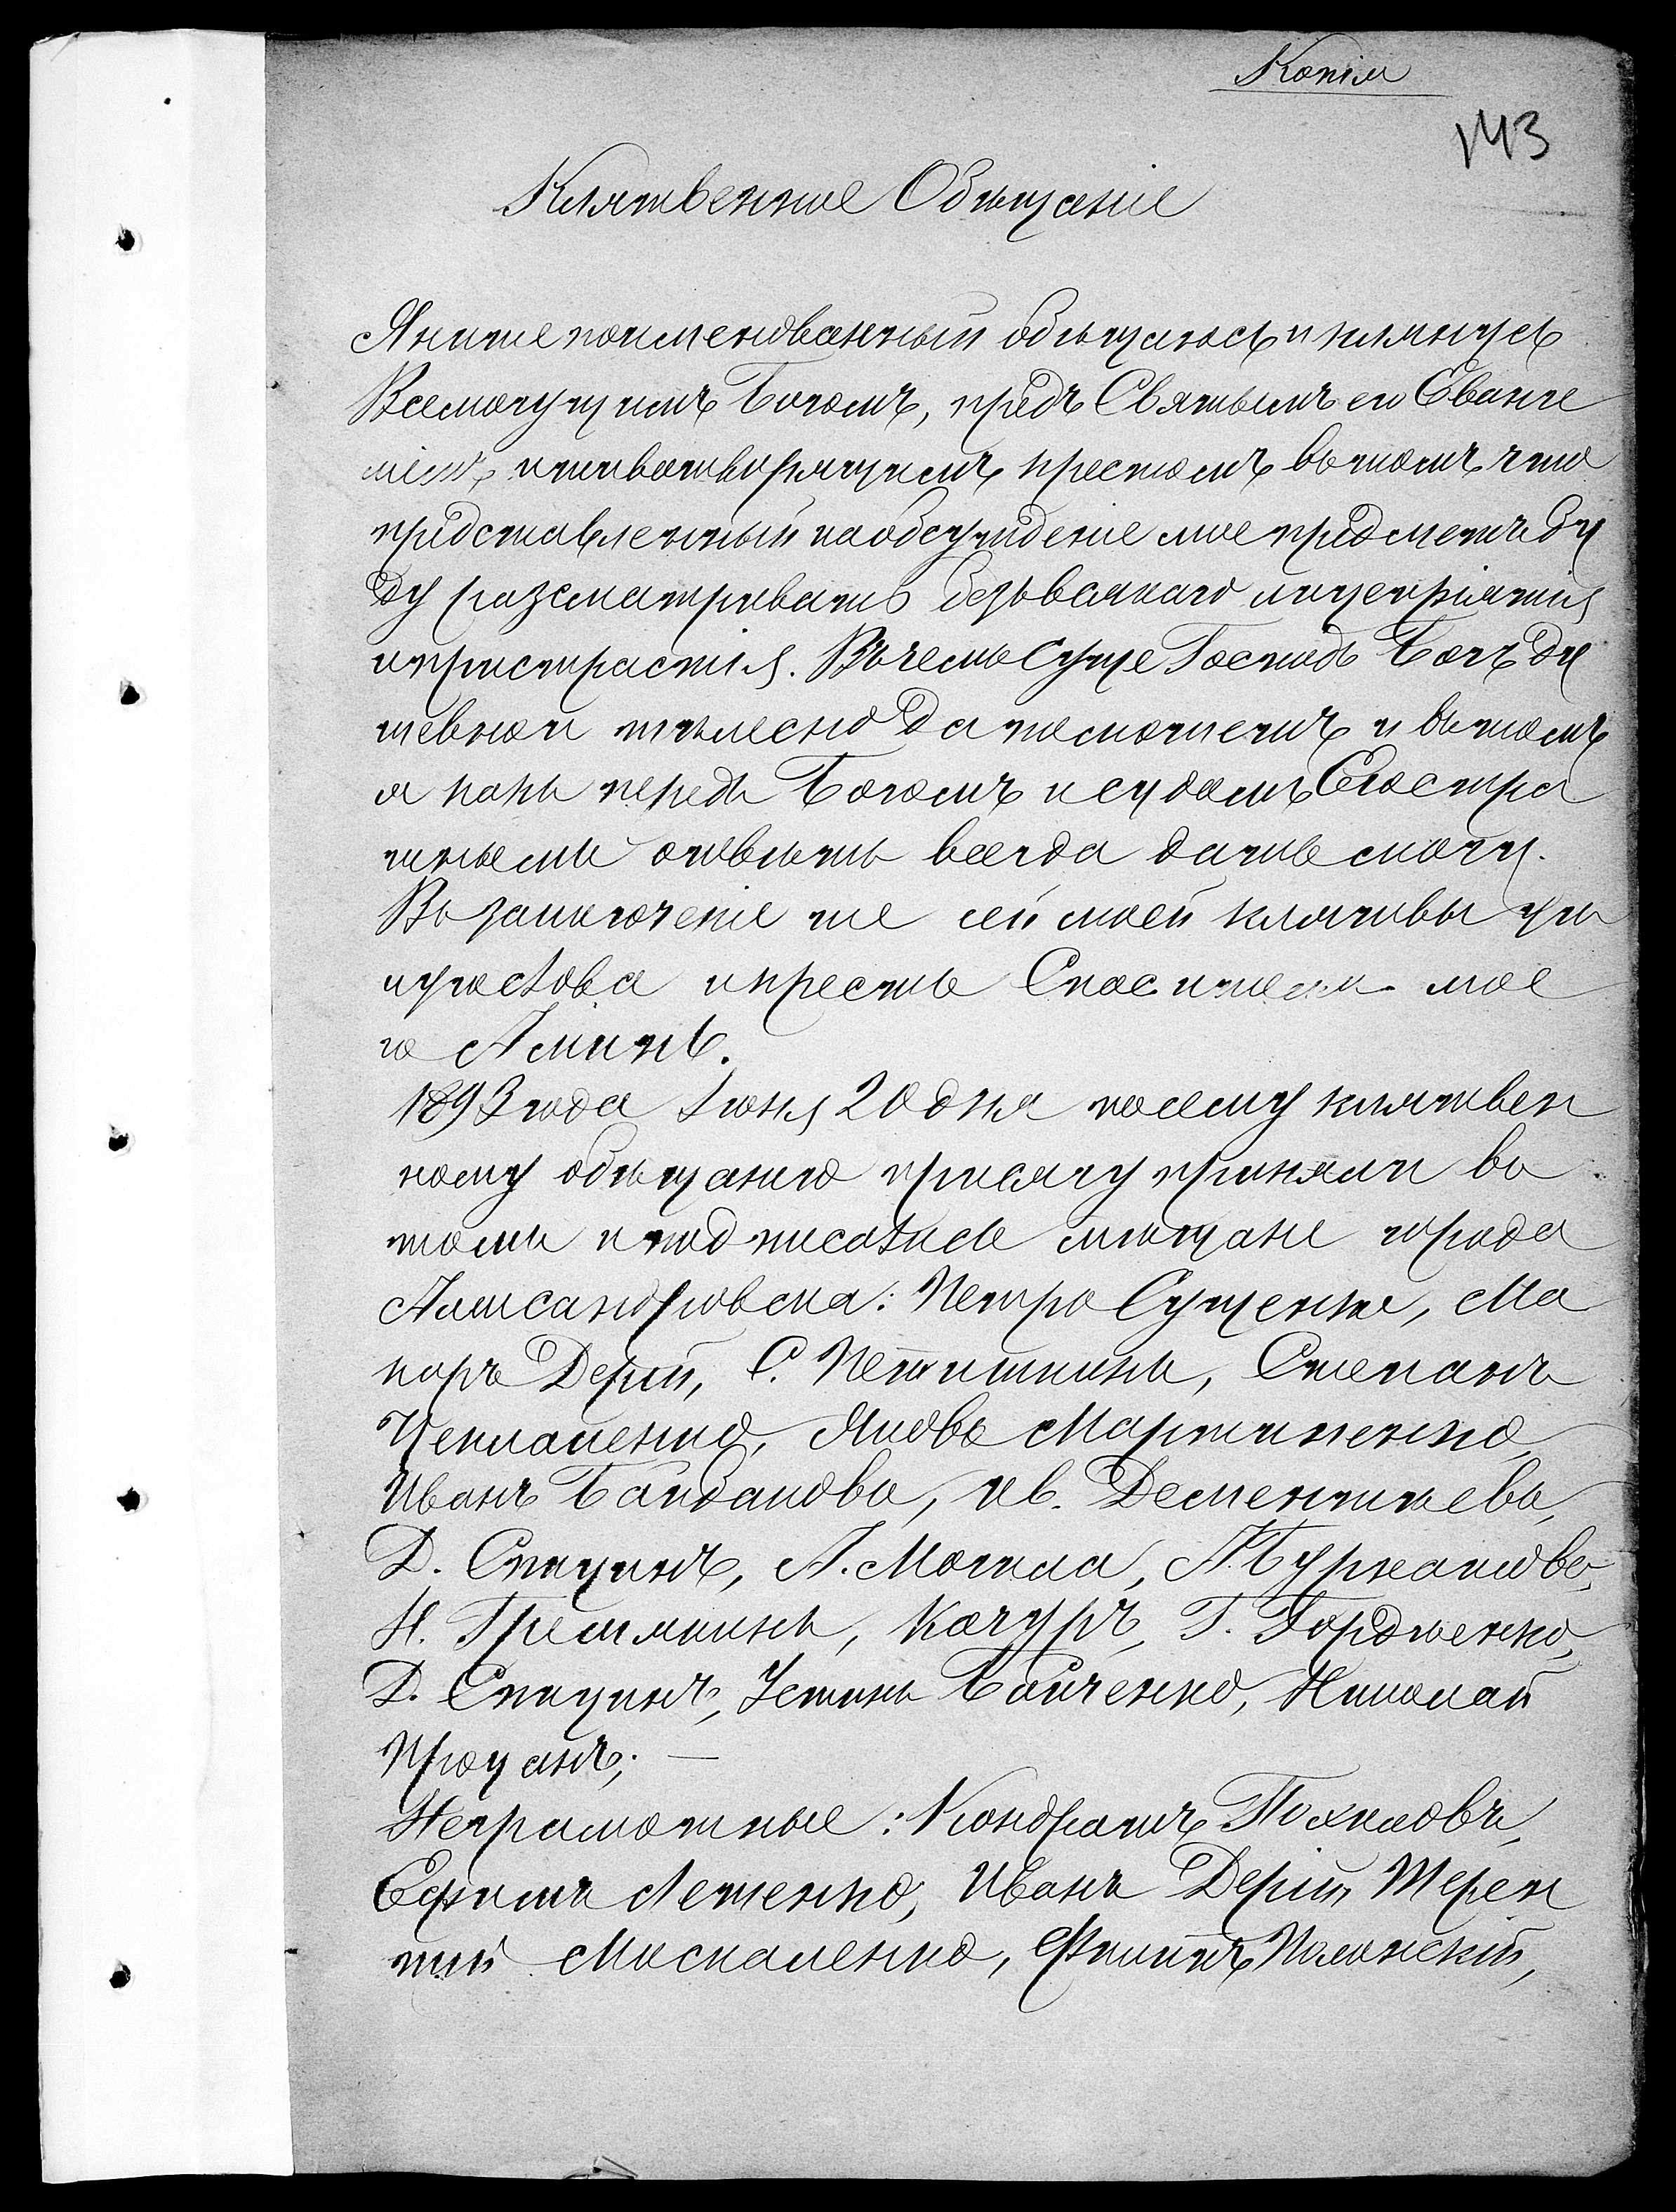 Копія
143
Клятвенное Обѣщаніе
Я ниже поименованный обѣщаюсь и клянусь
Всемогущимъ Богомъ, предъ Святымъ его Еванге
ліемъ, и животворящимъ крестомъ въ томъ что
представленный на обсужденіе мое предметъ бу
ду разсматривать безъ всякаго лицепріятія
и пристрастія. Въ чемъ Суще Господь Богъ ду
шевно и тѣлесно да поможетъ и въ томъ
я какъ передъ Богомъ и судомъ Его стра
шнымъ отвѣтъ всегда дать могу.
Въ заключеніе же сей моей клятвы цѣ
лую слова и крестъ Спасителя мое
го Аминь.
1893 года Іюня 20 дня по сему клятвен
ному обѣщанію присягу приняли въ
томъ и подписались мѣщане города
Александровска: Петро Сущенко, Ма
каръ Дерій, С. Степанъ
Чекмаценко, Яковъ Мартиненко,
Иванъ Байдаковъ, Ив. Дементьевъ,
Д. Спицинъ, А. Могила, А. Бурнашовъ,
Н. Гремякинъ, Качуръ, Г. Гордіенко,
Д. Спицинъ, Устинъ Бойченко, Николай
Процанъ; —
Неграмотные: Кондратъ Похиловъ,
Ефимъ Лещенко, Иванъ Дерій, Терен
тій Москаленко, Филипъ Полонскій,